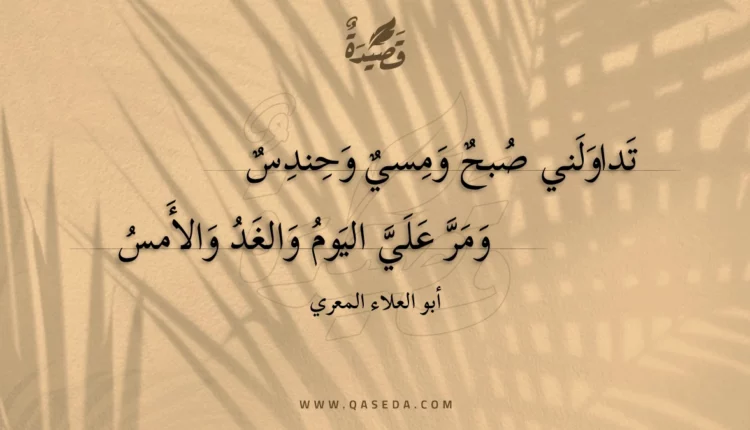 قَصِيدَةٌ
تَداوَلَني صُبحٌ وَمِسيٌ وَحِندِسٌ
وَمَرَّ عَلَيَّ اليَومُ وَالغَدُ وَالأَمسُ
أبو العلاء المعري
WWW.QASEDA.COM